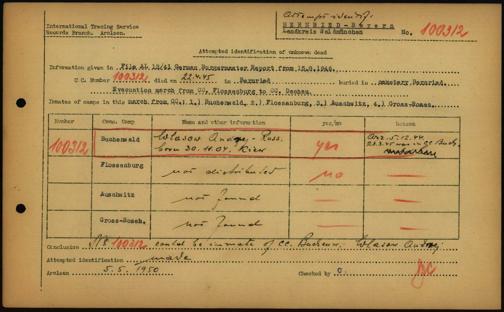 International Tracing Service
Records Branch. Arolsen.
Attempt identif.
BERNRIED-Bayern
Landkreis Waldmünchen
No. 100312
Attempted identification of unknown dead
Information given in File AL 12/61 German Burgermaster Report from 15.6.1946.
C.C. Number 100312 died on 22.4.45 in Bernried buried in cemetery Bernried
Evacuation march from CC. Flossenburg to CC. Dachau.
Inmates of camps in this march from CC.: 1.) Buchenwald, 2.) Flossenburg, 3.) Auschwitz, 4.) Gross-Rosen.
Number Conc. Camp Name and other information yes/no
100312 Buchenwald Wlasow Andrej - Russ. born 30.11.04. Kiew yes Arr. 5.12.44
in CC Buch.
Flossenburg not distributed no —
Auschwitz not found — —
Gross-Rosen. not found — —
Conclusion No 100312 could be inmate of CC. Buchenw. Wlasow Andrej
Attempted identification made
Arolsen 5.5.1950 Checked by